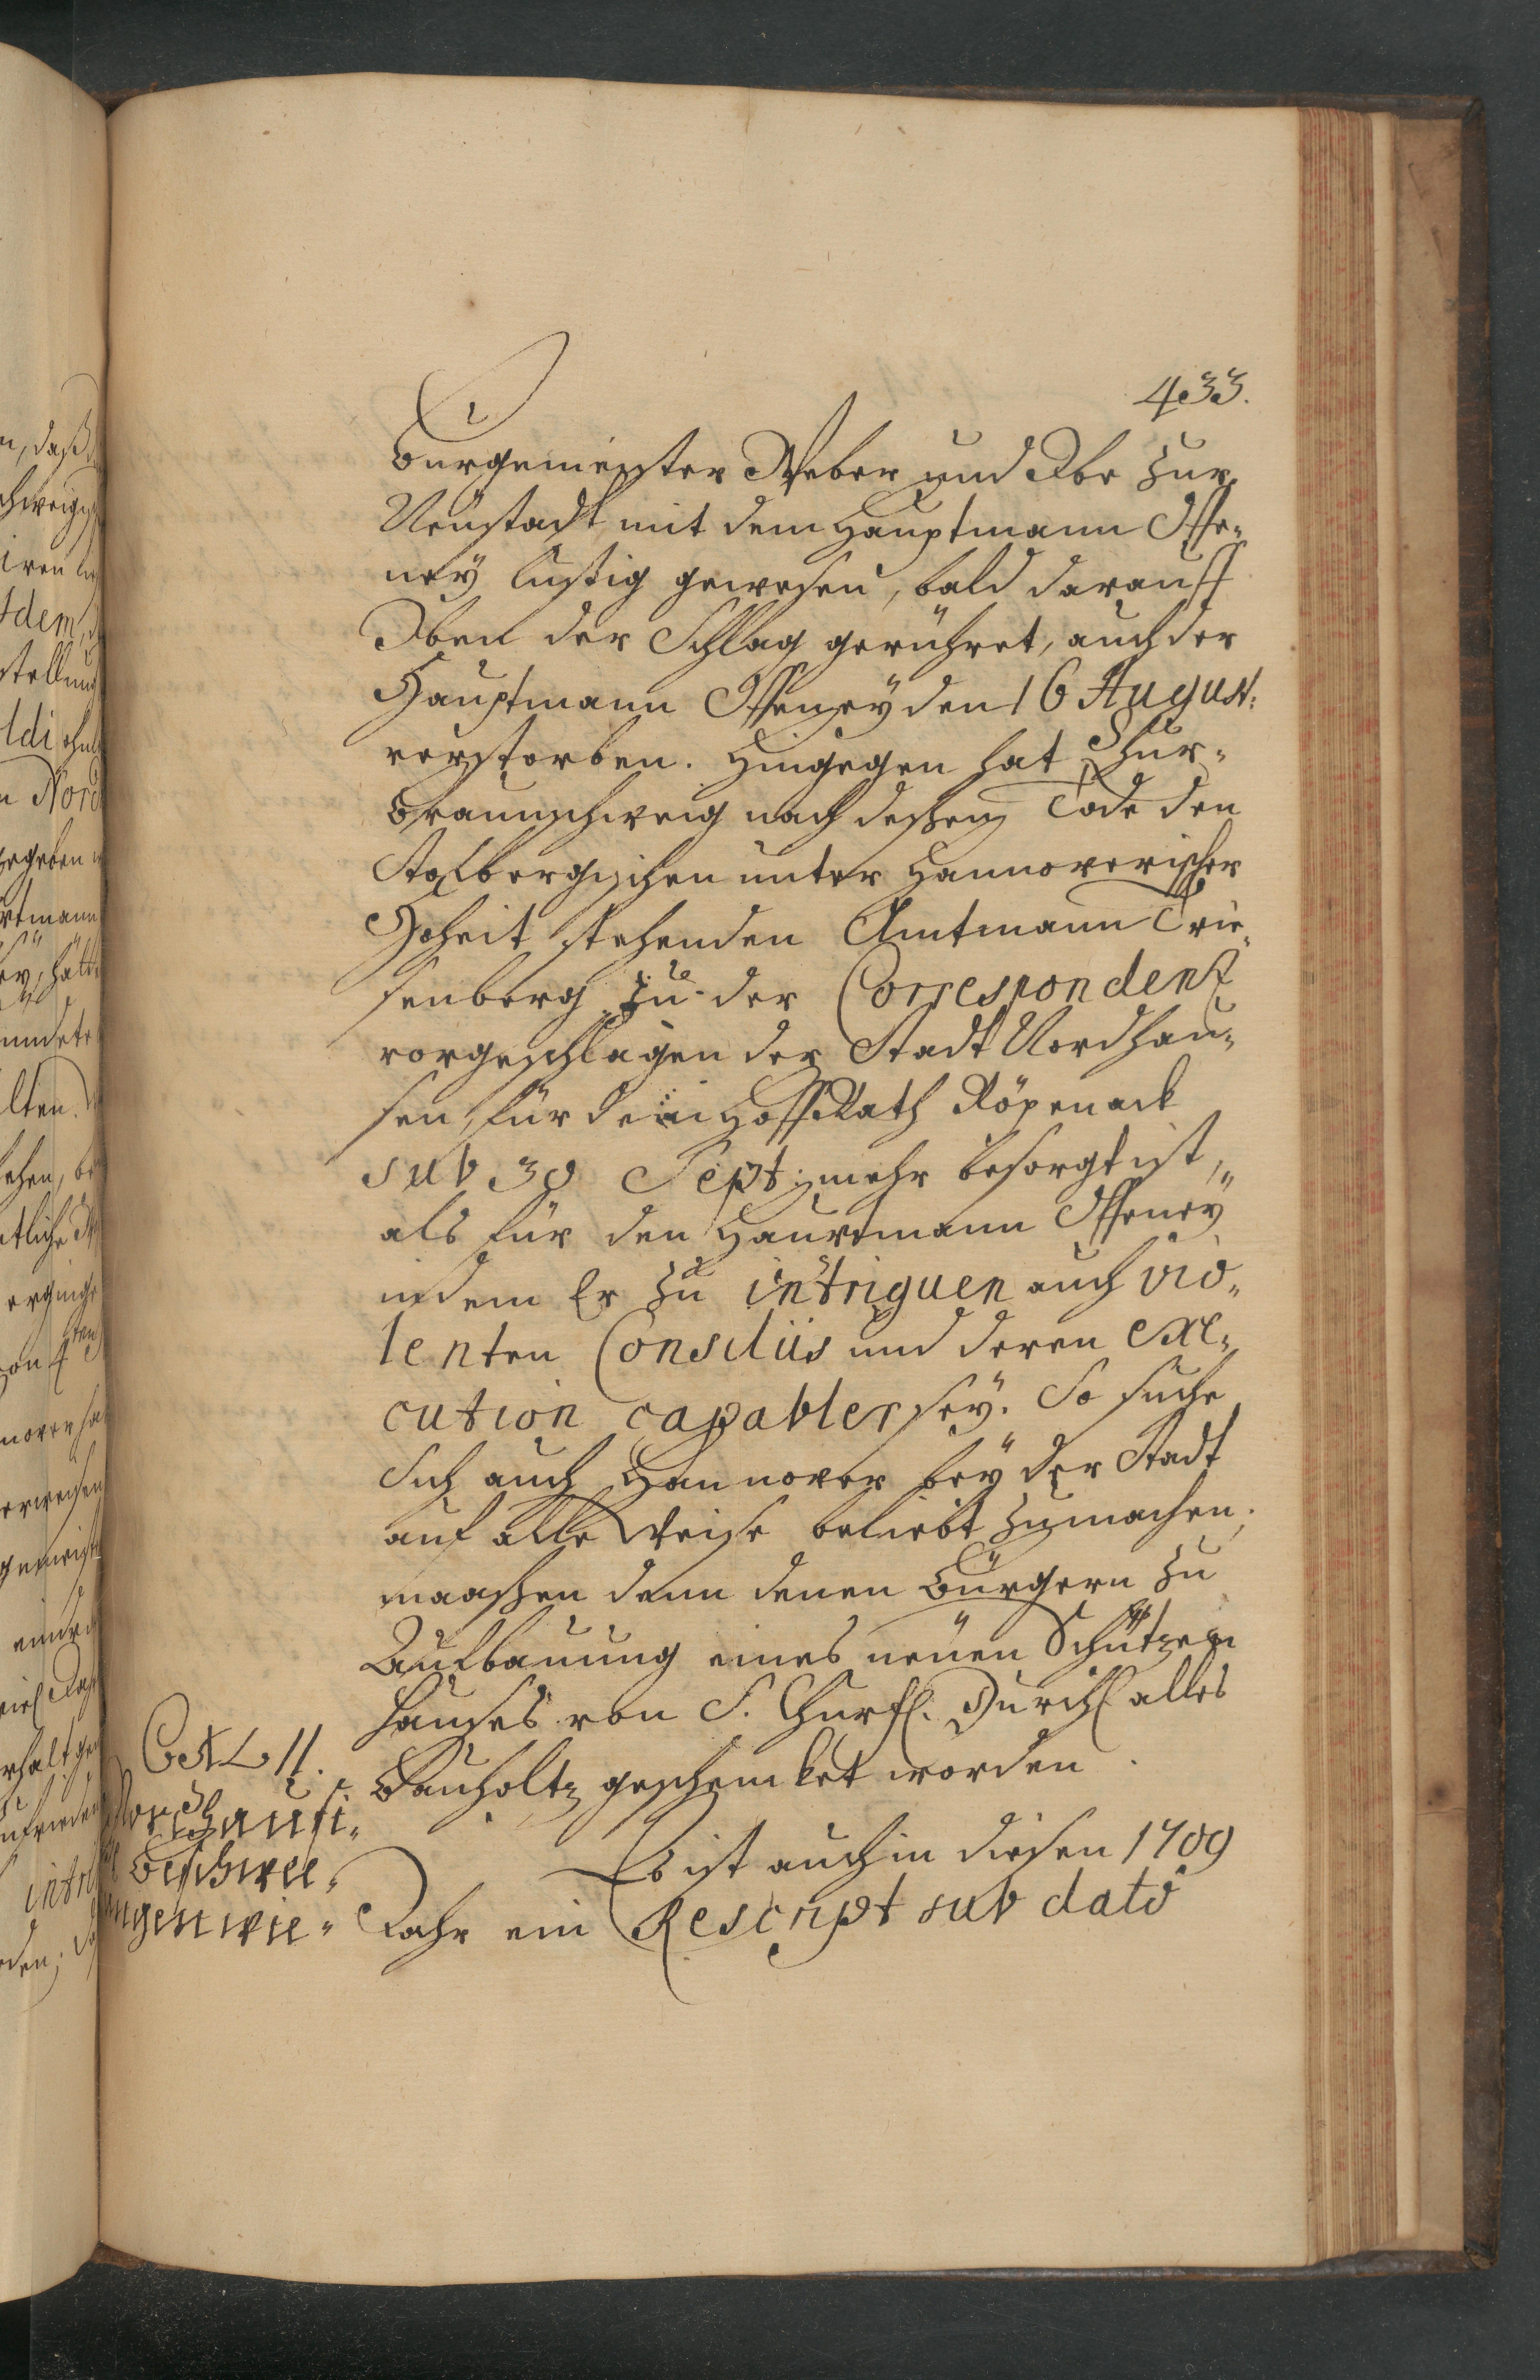 433.
Burgemeister Weber und Obe zur
Neustadt mit dem Hauptmann Offe-
ney lustig gewesen, bald darauff
Oben der Schlag gerühret, auch der
Hauptmann Offeney den 16 August:
verstorben. Hingegen hat Chur-
Braunschweig nach deßen Tode den
Stolbergischen unter Hannoverischer
Hoheit stehenden Amtmann Trie-
senberg zu der Correspondenz
vorgeschlagen der Stadt Nordhau-
sen, für dem HoffRath Röpenack
sub 30 Sept: mehr besorgt ist,
als für den Hauptmann Offeney
indem Er zu intriguen auch vio-
lenten Consiliis und deren exe-
cution capabler sey. So suche
Sich auch Hannover bey der Stadt
auf alle Weise beliebt zu machen,
maaßen denn denen Bürgern zu
Aufbauung eines neuen Schützen
Hauses von S. Churfl. Durchl alles
Bauholtz geschencket worden.
Es ist auch in diesen 1709
Jahr ein Rescript sub dato
Cap. 11.
Nordhausi-
Beschwee-
ungen wie-